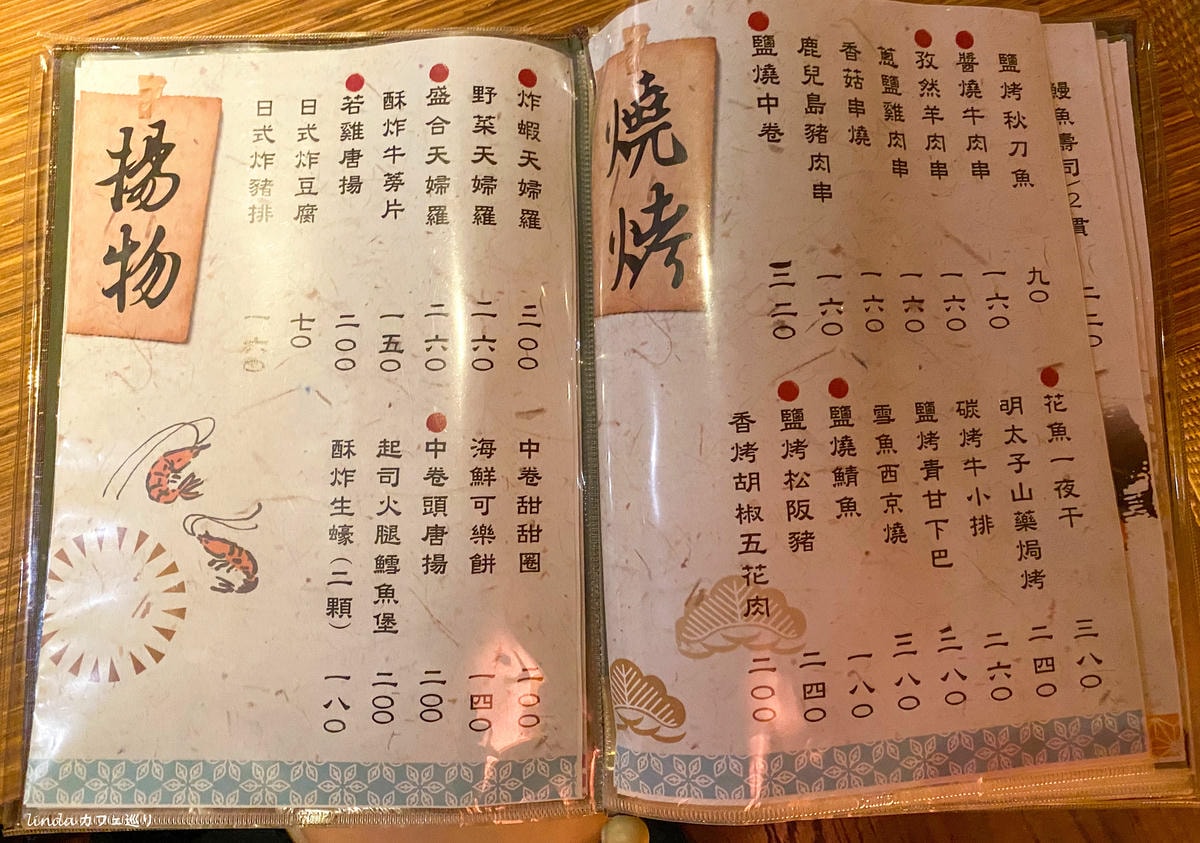 鰻魚壽司/2貫 二二〇
燒烤
鹽烤秋刀魚 九〇
醬燒牛肉串 一六〇
孜然羊肉串 一六〇
蔥鹽雞肉串 一六〇
香菇串燒 一六〇
鹿兒島豬肉串 一六〇
鹽燒中卷 三二〇
花魚一夜干 三八〇
明太子山藥焗烤 二四〇
碳烤牛小排 二六〇
鹽烤青甘下巴 三八〇
雪魚西京燒 三八〇
鹽燒鯖魚 一八〇
鹽烤松阪豬 二四〇
香烤胡椒五花肉 二〇〇
揚物
炸蝦天婦羅 三〇〇
野菜天婦羅 二六〇
盛合天婦羅 二六〇
酥炸牛蒡片 一五〇
若雞唐揚 二〇〇
日式炸豆腐 七〇
日式炸豬排 一六〇
中卷甜甜圈 二〇〇
海鮮可樂餅 一四〇
中卷頭唐揚 二〇〇
起司火腿鱈魚堡 二〇〇
酥炸生蠔(二顆) 一八〇
lindaカフェ巡り